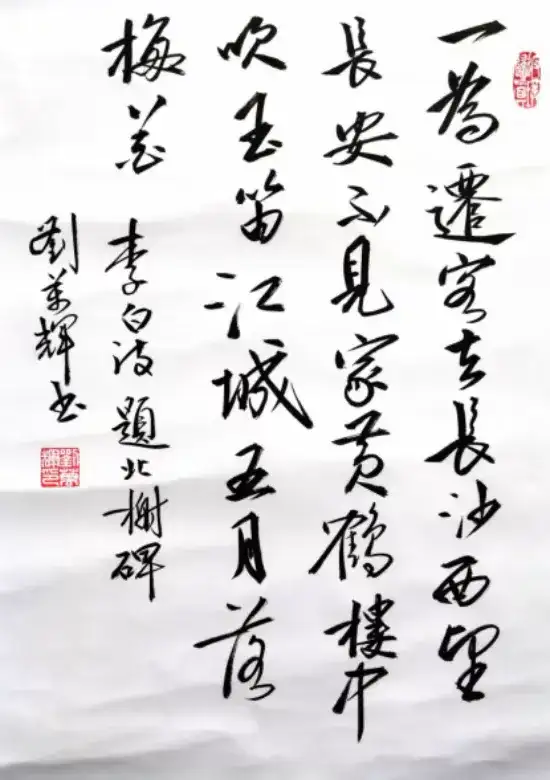 一為遷客去長沙西望
長安不見家黃鶴樓中
吹玉笛江城五月落
梅花
李白詩題北榭碑
劉輝书